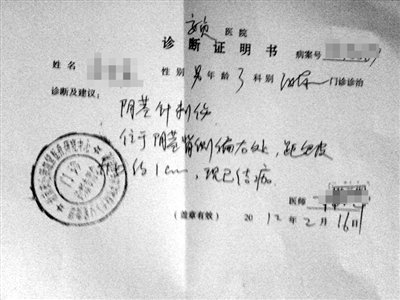 医院
诊断证明书 病案号
姓名 性别 男 年龄 3 科别 泌尿 门诊诊治
诊断及建议：
阴茎针刺伤
位于阴茎背侧偏右处，距包皮
约1cm，现已结痂。
医师
（盖章有效） 2012年2月16日